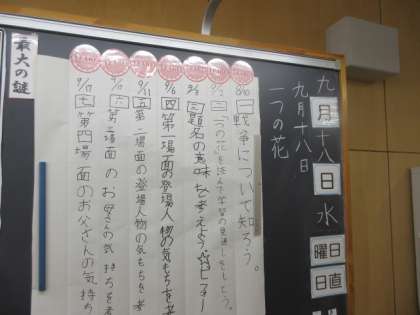 九月十八日水曜日
日直
九月十八日
一つの花
一 戦争について知ろう。
二 一つの花を読んで学習の見通しをもとう。
三 題名の意味を考えよう。
9/6 四 第一場面の登場人物の気もちを考
9/11 五 第二場面の登場人物の気もちを考
六 第三場面のお母さんの気持ちを考
9/17 七 第四場面のお父さんの気持ち
最大の謎